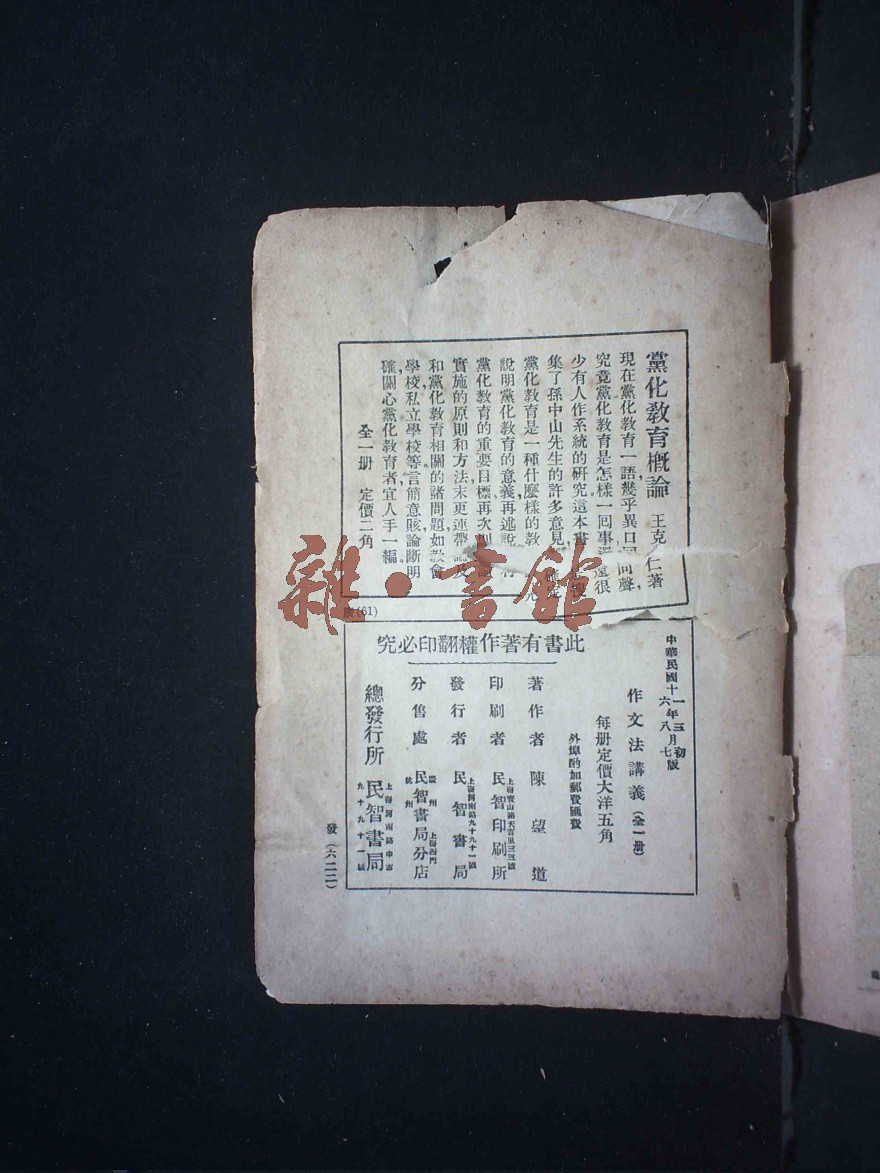 黨化教育概論 王克仁著
現在黨化教育一語,幾乎異口同聲,
究竟黨化教育是怎樣一回事,還很
少有人作系統的研究。這本書搜
集了孫中山先生的許多意見,
黨化教育是一種什麼樣的教
說明黨化教育的意義,再述說
黨化教育的重要目標,再次
實施的原則和方法,末更連帶及
和黨化教育相關的諸問題,如教會
學校,私立學校等。言簡意賅,論斷明
確,關心黨化教育者,宜人手一編。
全一册 定價二角
廣(61)
此書有著作權翻印必究
中華民國十一年三月初版
六年八月七版
作文法講義(全一册)
每册定價大洋五角
外埠酌加郵費匯費
著作者 陳望道
印刷者 民智印刷所
上海寶山路天吉里三三號
發行者 民智書局
上海河南路九十九十一號
分售處 民智書局分店
上海西門
杭州
總發行所 民智書局
上海河南路中市
九十九十一號
發(六二二)
雜·書館